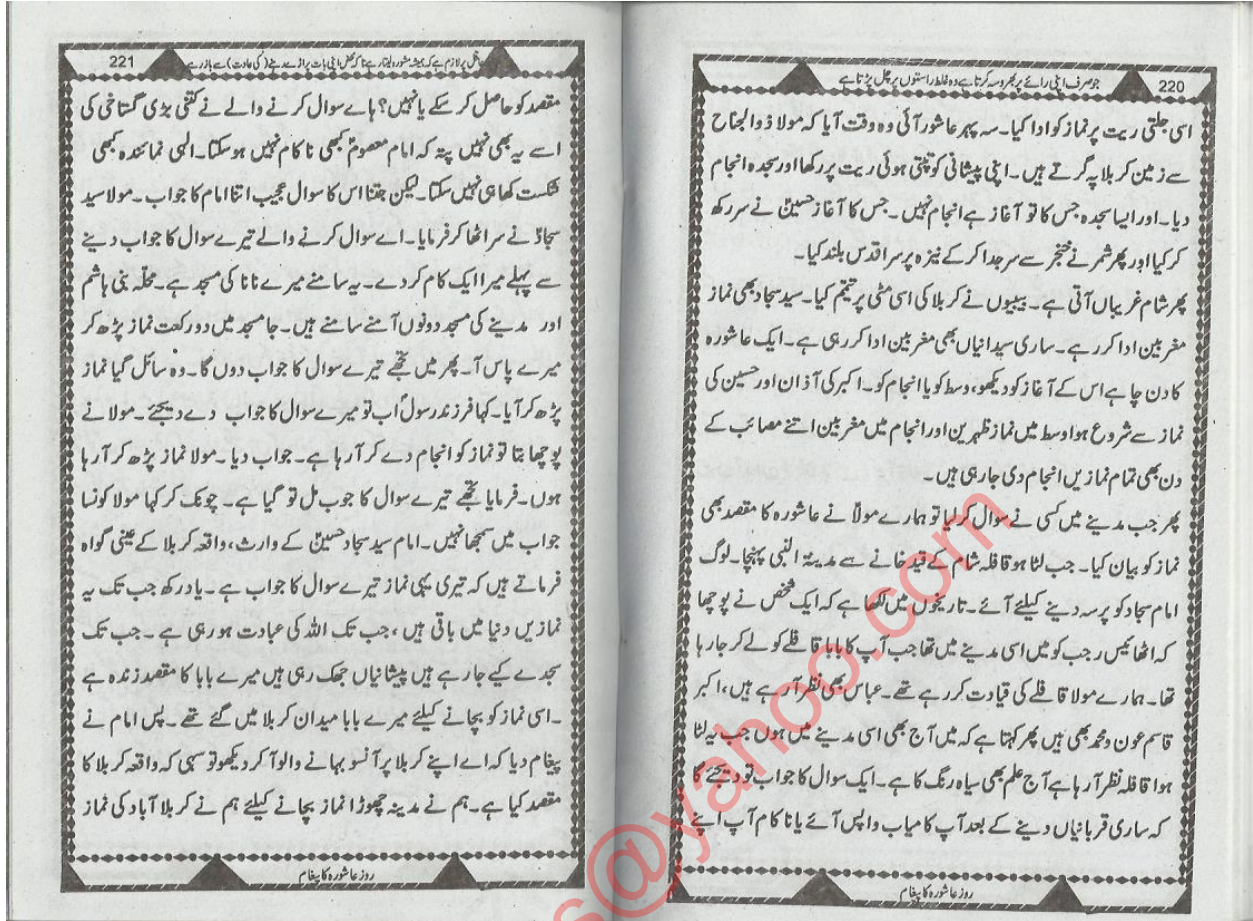 220
جو صرف اپنی رائے پر بھروسہ کرتا ہے وہ غلط راستوں پر چل پڑتا ہے
اسی جلتی ریت پر نماز کو ادا کیا۔ سہ پہر عاشور آئی وہ وقت آیا کہ مولا ذوالجناح
سے زمین کربلا پہ گرتے ہیں۔ اپنی پیشانی کو تپتی ہوئی ریت پر رکھا اور سجدہ انجام
دیا۔ اور ایسا سجدہ جس کا تو آغاز ہے انجام نہیں۔ جس کا آغاز حسینؑ نے سر رکھ
کر کیا اور پھر شمر نے خنجر سے سر جدا کر کے نیزہ پر سر اقدس بلند کیا۔
پھر شام غریباں آتی ہے۔ بیبیوں نے کربلا کی اسی مٹی پر تیمّم کیا۔ سید سجاد بھی نماز
مغربین ادا کر رہے۔ ساری سیدانیاں بھی مغربین ادا کر رہی ہے۔ ایک عاشورہ
کا دن چاہے اس کے آغاز کو دیکھو، وسط کو یا انجام کو۔ اکبر کی آذان اور حسین کی
نماز سے شروع ہوا وسط میں نماز ظہرین اور انجام میں مغربین اتنے مصائب کے
دن بھی تمام نمازیں انجام دی جا رہی ہیں۔
پھر جب مدینے میں کسی نے سوال کر لیا تو ہمارے مولاؑ نے عاشورہ کا مقصد بھی
نماز کو بیان کیا۔ جب لٹا ہو قافلہ شام کے قید خانے سے مدینۃ النبی پہنچا۔ لوگ
امام سجاد کو پرسہ دینے کیلئے آئے۔ تاریخوں میں لکھا ہے کہ ایک شخص نے پوچھا
کہ اٹھائیس رجب کو میں اسی مدینے میں تھا جب آپ کا بابا قافلے کو لے کر جا رہا
تھا۔ ہمارے مولا قافلے کی قیادت کر رہے تھے۔ عباس بھی نظر آ رہے ہیں، اکبر
قاسم عون و محمد بھی ہیں پھر کہتا ہے کہ میں آج بھی اسی مدینے میں ہوں جب یہ لٹا
ہوا قافلہ نظر آ رہا ہے آج علم بھی سیاہ رنگ کا ہے۔ ایک سوال کا جواب تو دیجئے گا
کہ ساری قربانیاں دینے کے بعد آپ کامیاب واپس آئے یا ناکام آپ اپنے
روز عاشورہ کا پیغام
221
عاقل پر لازم ہے کہ ہمیشہ مشورہ لیتا رہے تاکہ محض اپنی بات پر اڑے رہنے (کی عادت) سے باز رہے
مقصد کو حاصل کر سکے یا نہیں؟ ہاے سوال کرنے والے نے کتنی بڑی گستاخی کی
اسے یہ بھی نہیں پتہ کہ امام معصومؑ کبھی ناکام نہیں ہو سکتا۔ الٰہی نمائندہ کبھی
شکست کھا ہی نہیں سکتا۔ لیکن جتنا اس کا سوال عجیب اتنا امام کا جواب۔ مولا سید
سجادؑ نے سر اٹھا کر فرمایا۔ اے سوال کرنے والے تیرے سوال کا جواب دینے
سے پہلے میرا ایک کام کر دے۔ یہ سامنے میرے نانا کی مسجد ہے۔ محلّہ بنی ہاشم
اور مدینے کی مسجد دونوں آمنے سامنے ہیں۔ جا مسجد میں دو رکعت نماز پڑھ کر
میرے پاس آ۔ پھر میں تجھے تیرے سوال کا جواب دوں گا۔ وہ سائل گیا نماز
پڑھ کر آیا۔ کہا فرزند رسولؐ اب تو میرے سوال کا جواب دے دیجئے۔ مولا نے
پوچھا بتا تو نماز کو انجام دے کر آ رہا ہے۔ جواب دیا۔ مولا نماز پڑھ کر آ رہا
ہوں۔ فرمایا تجھے تیرے سوال کا جوب مل تو گیا ہے۔ چونک کر کہا مولا کونسا
جواب میں سمجھا نہیں۔ امام سید سجاد حسینؑ کے وارث، واقعہ کربلا کے عینی گواہ
فرماتے ہیں کہ تیری یہی نماز تیرے سوال کا جواب ہے۔ یاد رکھ جب تک یہ
نمازیں دنیا میں باقی ہیں، جب تک اللہ کی عبادت ہو رہی ہے۔ جب تک
سجدے کیے جا رہے ہیں پیشانیاں جھک رہی ہیں میرے بابا کا مقصد زندہ ہے
۔ اسی نماز کو بچانے کیلئے میرے بابا میدان کربلا میں گئے تھے۔ پس امام نے
پیغام دیا کہ اے اپنے کربلا پر آنسو بہانے والو آ کر دیکھو تو سہی کہ واقعہ کربلا کا
مقصد کیا ہے۔ ہم نے مدینہ چھوڑا نماز بچانے کیلئے ہم نے کربلا آباد کی نماز
روز عاشورہ کا پیغام
s@yahoo.com